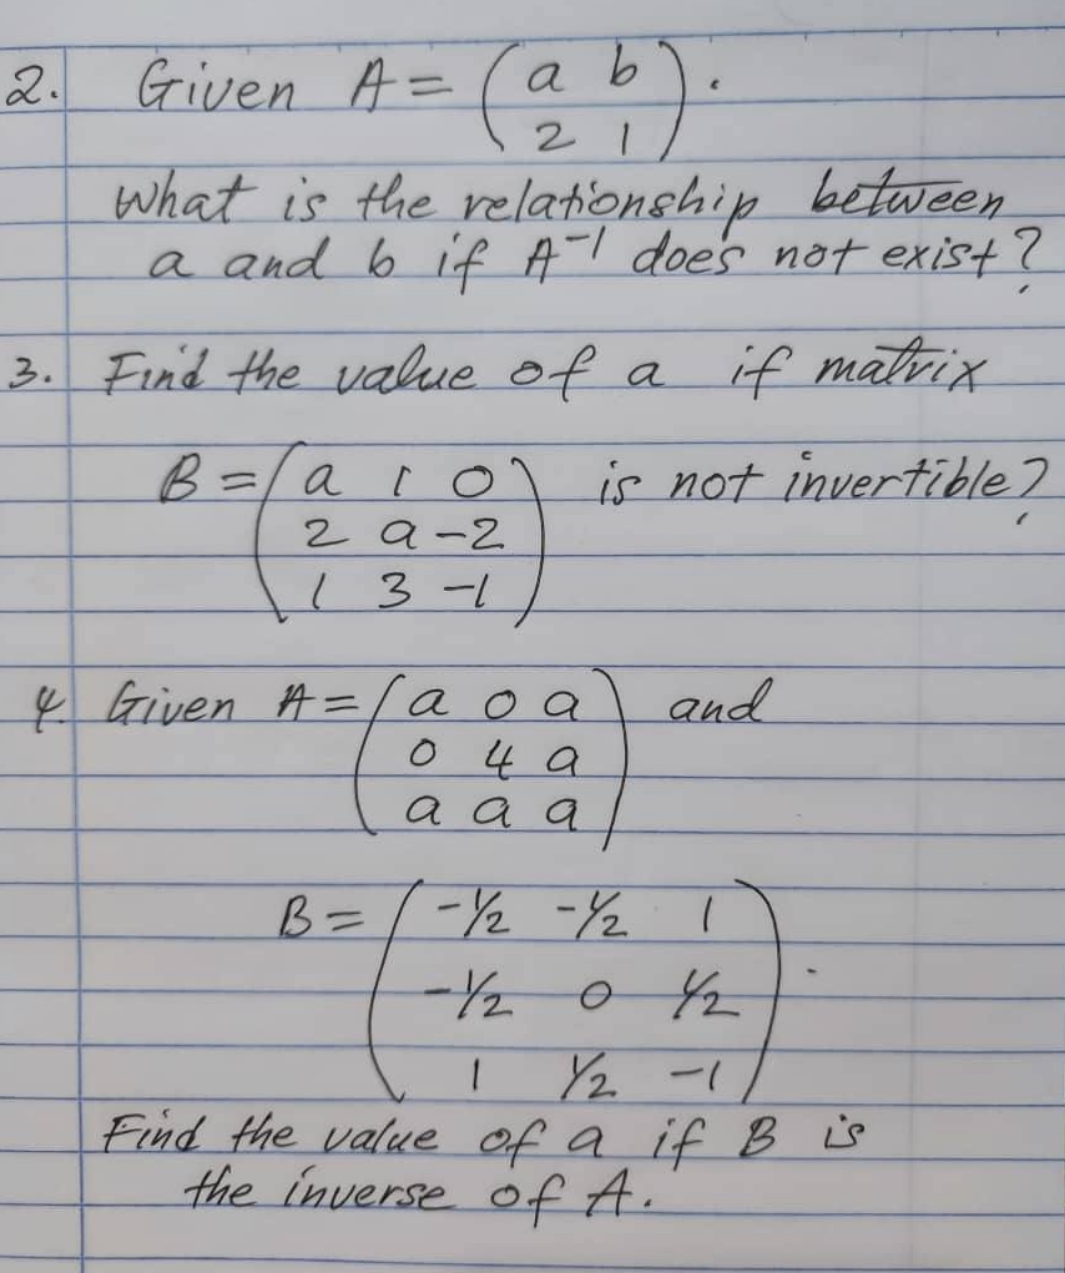 2. Given A = ( a b ) .
2 1
What is the relationship between
a and b if A⁻¹ does not exist?
3. Find the value of a if matrix
B = ( a 1 0 ) is not invertible?
2 a -2
1 3 -1
4. Given A = ( a 0 a ) and
0 4 a
a a a
B = ( -1/2 -1/2 1 ) .
-1/2 0 1/2
1 1/2 -1
Find the value of a if B is
the inverse of A.